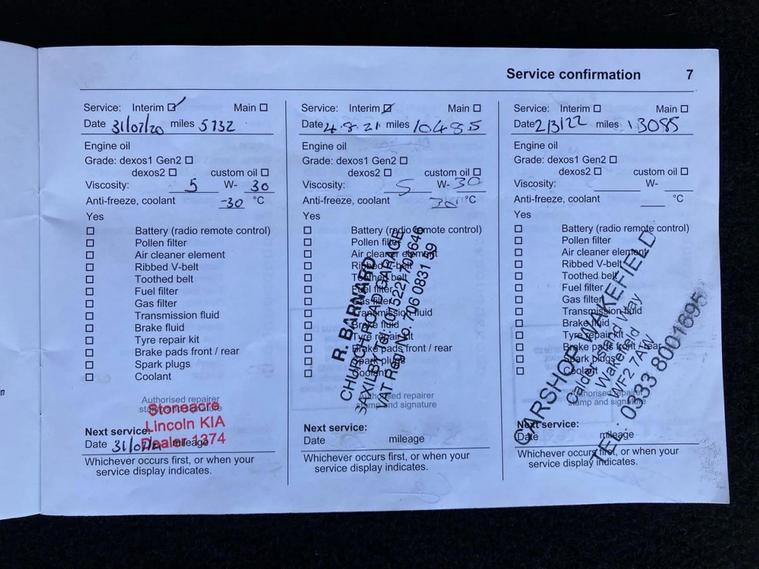 Service confirmation 7
Service: Interim ☑ Main ☐
Date 31/07/20 miles 5732
Engine oil
Grade: dexos1 Gen2 ☐
dexos2 ☐ custom oil ☐
Viscosity: 5 W- 30
Anti-freeze, coolant -30 °C
Yes
☐ Battery (radio remote control)
☐ Pollen filter
☐ Air cleaner element
☐ Ribbed V-belt
☐ Toothed belt
☐ Fuel filter
☐ Gas filter
☐ Transmission fluid
☐ Brake fluid
☐ Tyre repair kit
☐ Brake pads front / rear
☐ Spark plugs
☐ Coolant
Authorised repairer
stamp and signature
Stoneacre
Lincoln KIA
Dealer 1374
Next service:
Date 31/07/21 mileage
Whichever occurs first, or when your
service display indicates.
Service: Interim ☑ Main ☐
Date 4.8.21 miles 10485
Engine oil
Grade: dexos1 Gen2 ☐
dexos2 ☐ custom oil ☐
Viscosity: 5 W- 30
Anti-freeze, coolant °C
Yes
☐ Battery (radio remote control)
☐ Pollen filter
☐ Air cleaner element
☐ Ribbed V-belt
☐ Toothed belt
☐ Fuel filter
☐ Gas filter
☐ Transmission fluid
☐ Brake fluid
☐ Tyre repair kit
☐ Brake pads front / rear
☐ Spark plugs
☐ Coolant
Authorised repairer
stamp and signature
R. BARNARD
CHURCH ROAD GARAGE
SAXILBY Tel: (01522) 702646
VAT Reg No. 706 0831 59
Next service:
Date mileage
Whichever occurs first, or when your
service display indicates.
Service: Interim ☐ Main ☐
Date 2/3/22 miles 13085
Engine oil
Grade: dexos1 Gen2 ☐
dexos2 ☐ custom oil ☐
Viscosity: W-
Anti-freeze, coolant °C
Yes
☐ Battery (radio remote control)
☐ Pollen filter
☐ Air cleaner element
☐ Ribbed V-belt
☐ Toothed belt
☐ Fuel filter
☐ Gas filter
☐ Transmission fluid
☐ Brake fluid
☐ Tyre repair kit
☐ Brake pads front / rear
☐ Spark plugs
☐ Coolant
Authorised repairer
stamp and signature
CARSHOP WAKEFIELD
Calder Island Way
Wakefield
WF2 7AW
TEL: 0333 8001695
Next service:
Date mileage
Whichever occurs first, or when your
service display indicates.